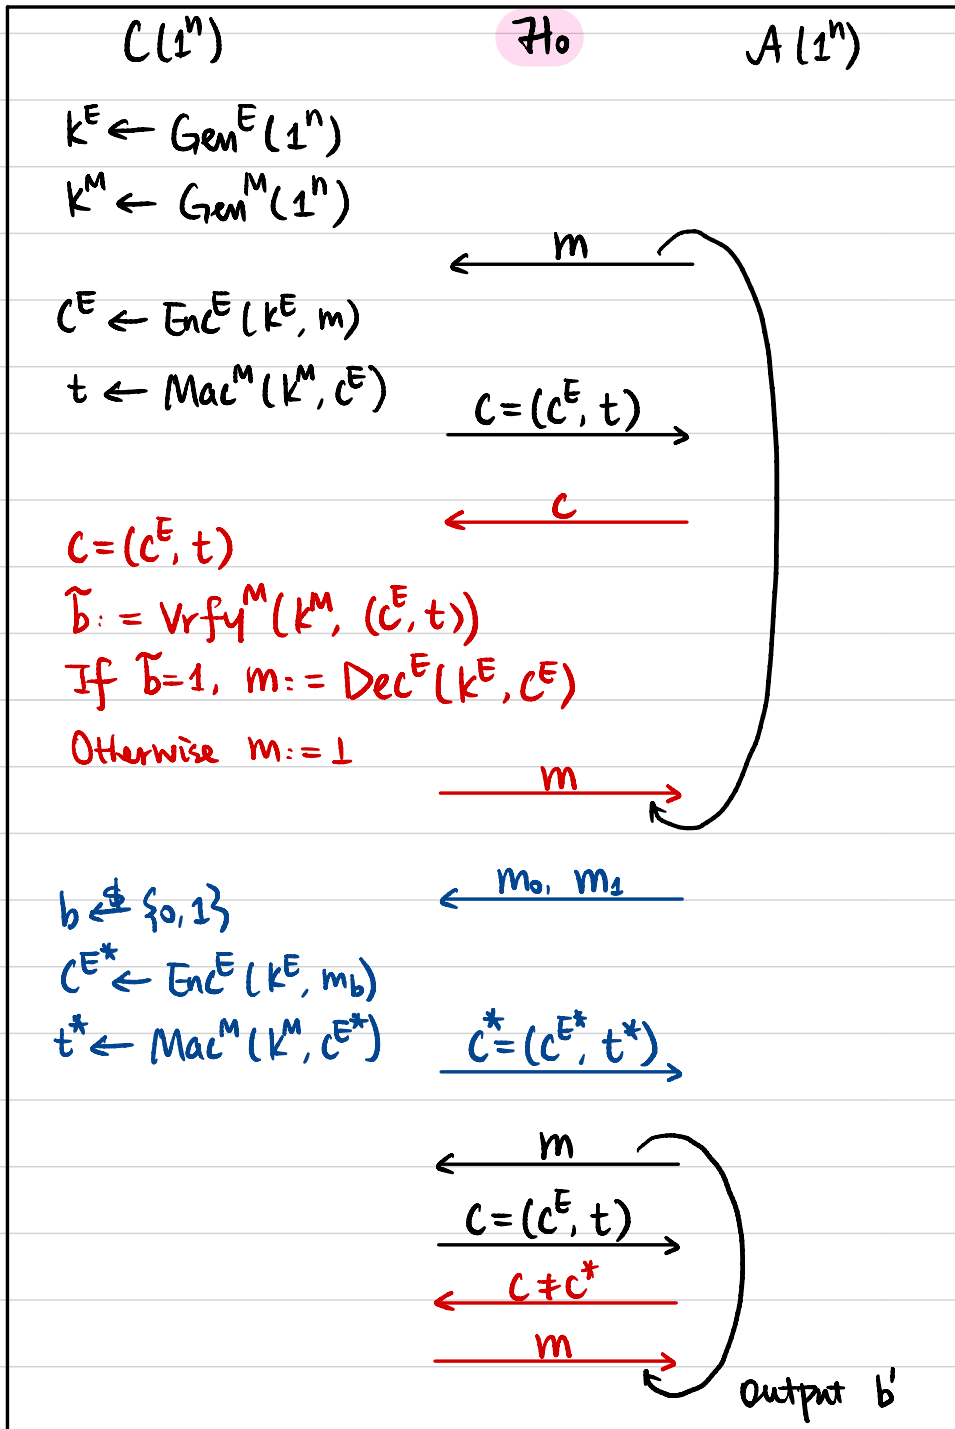 C(1ⁿ) H₀ A(1ⁿ)
k^E ← Gen^E(1ⁿ)
k^M ← Gen^M(1ⁿ)
m
C^E ← Enc^E(k^E, m)
t ← Mac^M(k^M, C^E)
C=(C^E, t)
C
C=(C^E, t)
b̃ := Vrfy^M(k^M, (C^E, t))
If b̃=1, m := Dec^E(k^E, C^E)
Otherwise m := 1
m
m₀, m₁
b ←$ {0,1}
C^E* ← Enc^E(k^E, m_b)
t* ← Mac^M(k^M, C^E*)
C*=(C^E*, t*)
m
C=(C^E, t)
C≠C*
m
Output b'